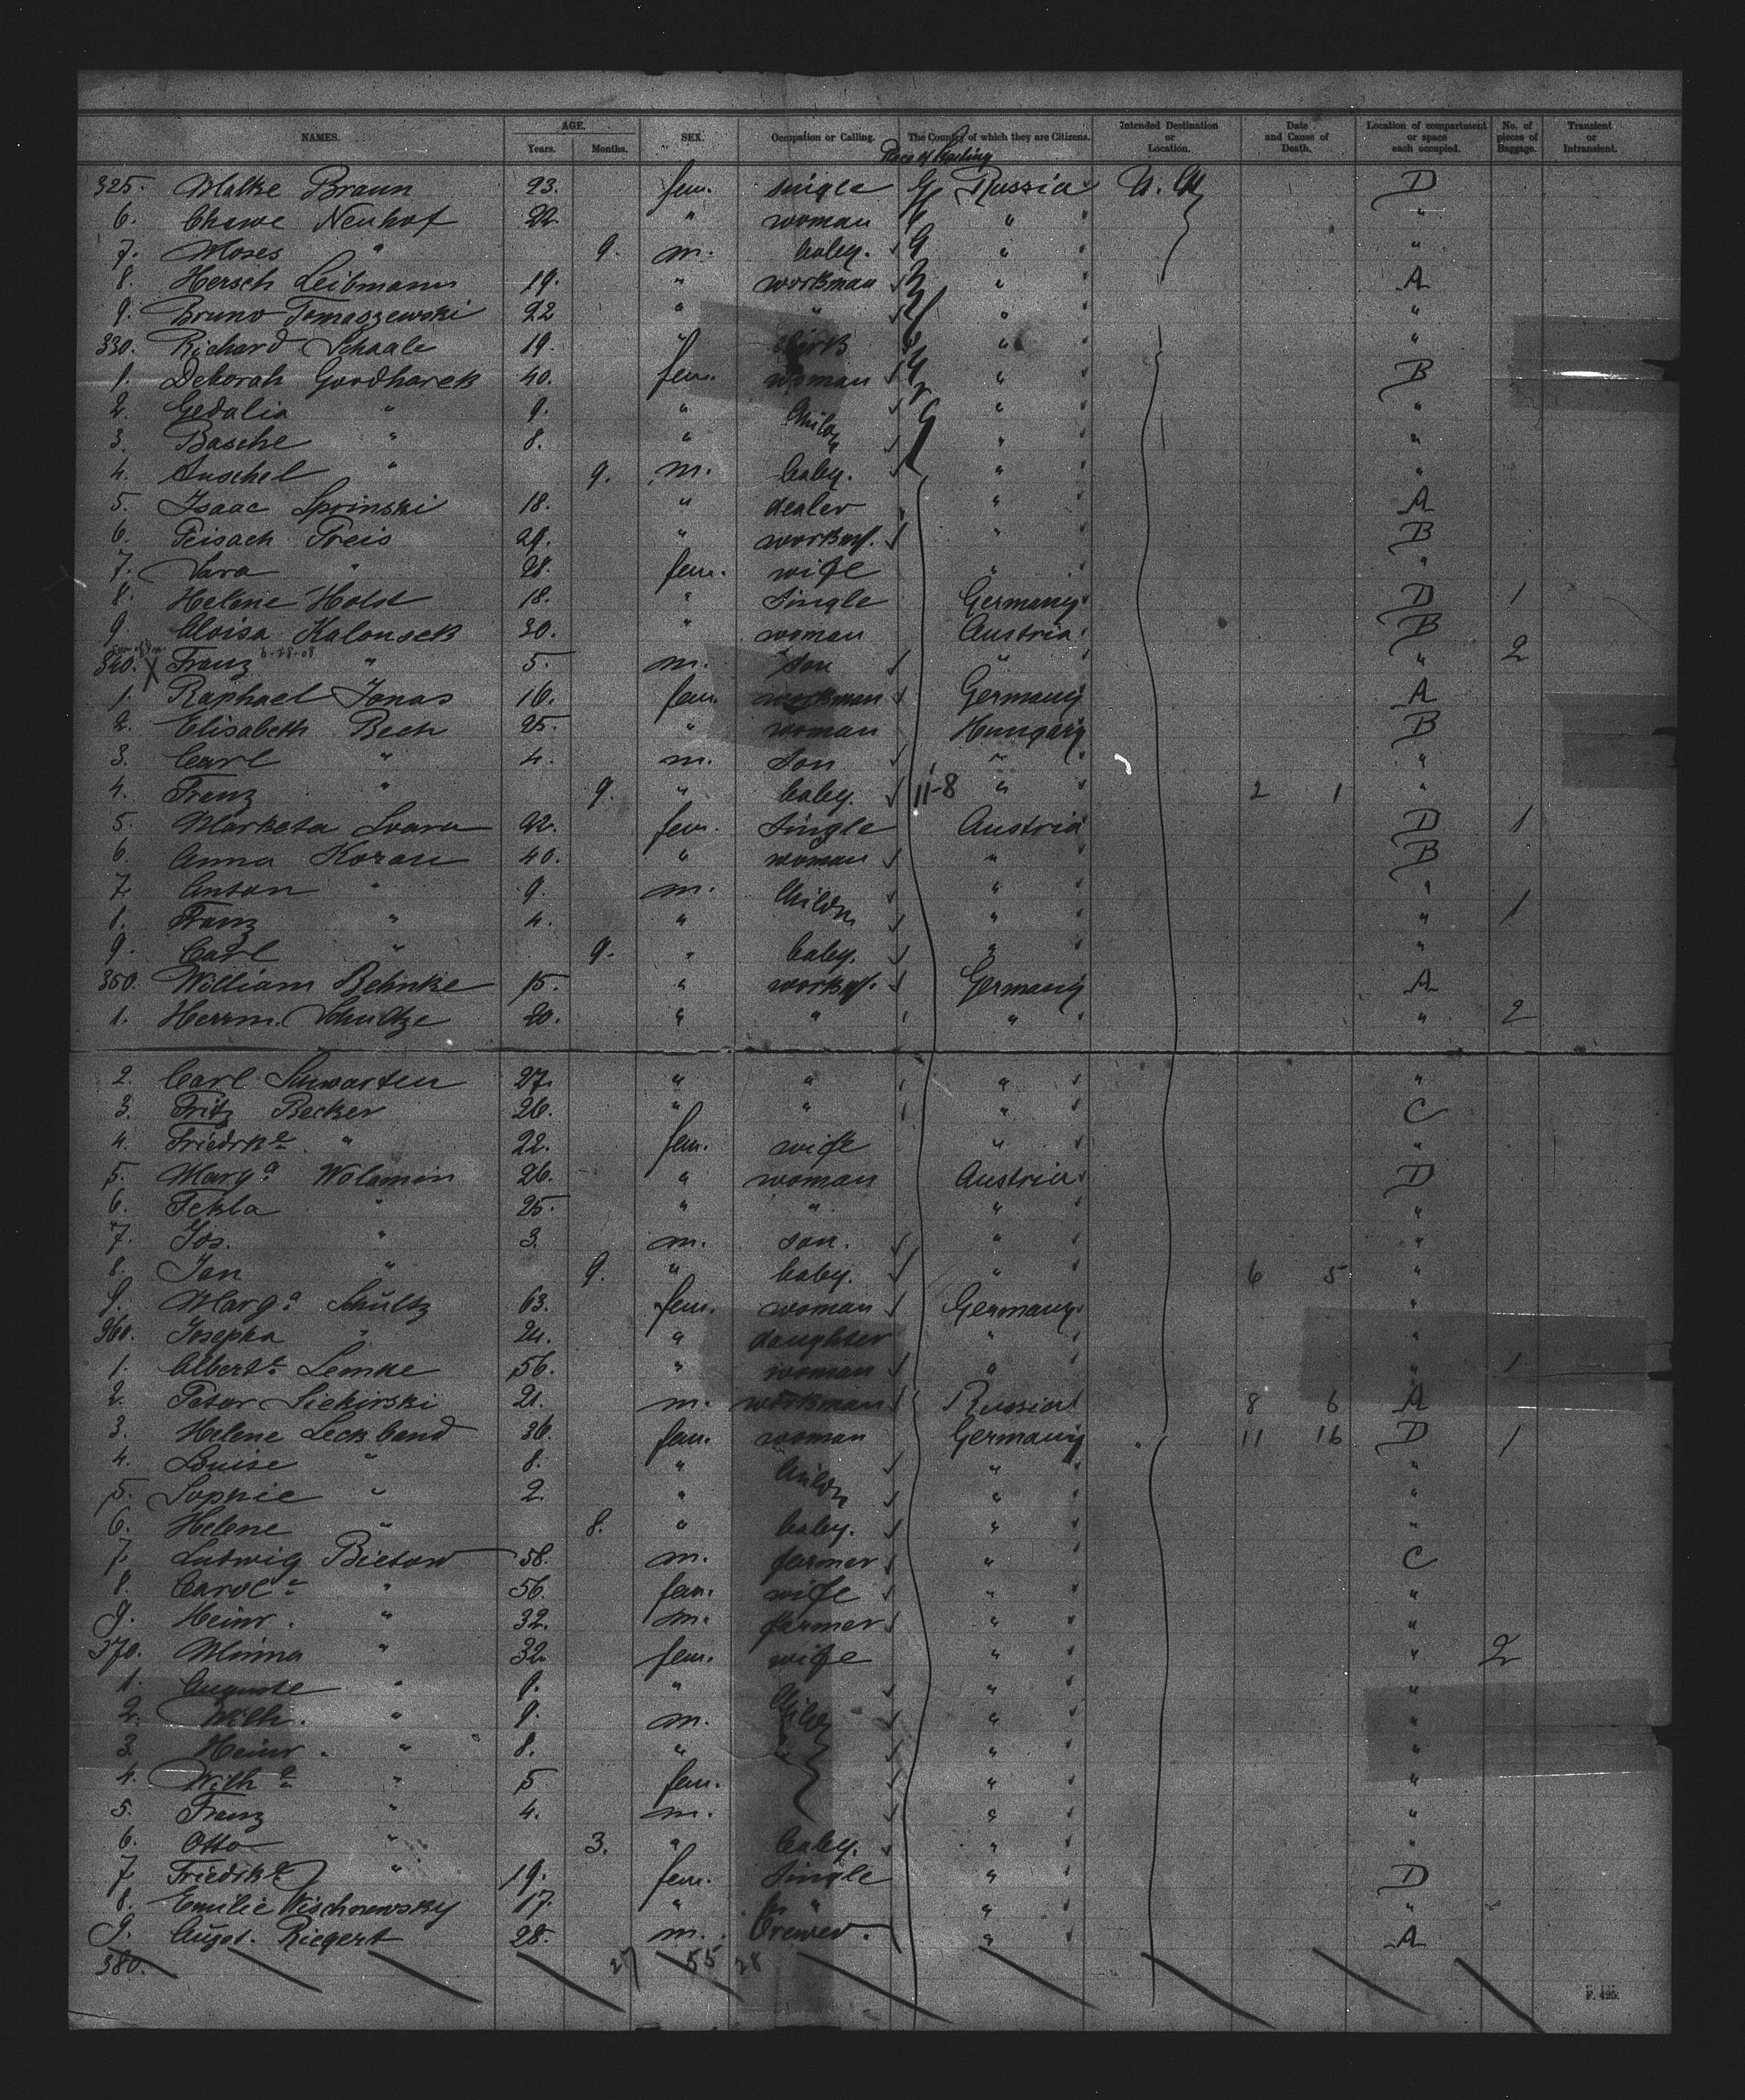 NAMES. AGE. Years. Months. SEX. Occupation or Calling. The Country of which they are Citizens. Intended Destination or Location. Date and Cause of Death. Location of compartment or space each occupied. No. of pieces of Baggage. Transient or Intransient.
Place of
325. Malke Braun 23. fem. single Russia U. D
6. Chawe Neuhof 22 " woman " "
7. Moses " 9. m. baby. " "
8. Hersch Leibmann 19. " workman " A
9. Bruno Tomaszewski 22 " " " "
330. Richard Schaale 19. " " "
1. Deborah Gordharek 40. fem. woman " B
2. Gedalia " 9. " Childn " "
3. Basche " 8. " " "
4. Anschel " 9. m. baby. " "
5. Isaac Sprinski 18. " dealer " A
6. Feisach Freis 29. " workm. " B
7. Sara " 28. fem. wife " "
8. Helene Holst 18. " single Germany D 1
9. Aloisa Kalousek 30. " woman Austria B
340. X Franz 6-28-08 " 5. m. son " " 2
1. Raphael Jonas 16. fem. workman Germany A
2. Elisabeth Bech 25. " woman Hungary B
3. Carl " 4. m. son " "
4. Frenz " 9. " baby. 11-8 " 2 1 "
5. Marketa Svara 22. fem. single Austria D 1
6. Anna Koran 40. " woman " B
7. Anton " 9. m. Childn " "
8. Franz " 4. " " " 1
9. Carl " 9. " baby. " "
350. William Behnke 15. " workm. Germany A
1. Herrm. Schultze 20. " " " " 2
2. Carl Schwarten 27. " " " "
3. Fritz Becker 26. " " " C
4. Friedrke " 22. fem. wife " "
5. Marga Wolamin 26. " woman Austria D
6. Tekla " 25. " " " "
7. Jos. " 3. m. son. " "
8. Jan " 9. " baby. " 6 5 "
9. Marga Schultz 63. fem. woman Germany "
360. Josepha " 24. " daughter " "
1. Alberte Lemke 56. " woman " " 1
2. Peter Siekirski 21. m. workman Russia 8 6 A
3. Helene Leckband 36. fem. woman Germany 11 16 D 1
4. Louise " 8. " Childn " "
5. Sophie " 2. " " "
6. Helene " 8. " baby. " "
7. Ludwig Bietow 58. m. farmer " C
8. Carole " 56. fem. wife " "
9. Heinr. " 32. m. farmer " "
370. Minna " 32 fem. wife " " 2
1. Auguste " 9. " Childn " "
2. Wilh. " 9. m. " "
3. Heinr. " 8. " " " "
4. Wilhe " 5 fem. " "
5. Franz " 4. m. " "
6. Otto " 3. " baby. " "
7. Friedrke " 19. fem. single " D
8. Emilie Wischnewsky 17. " " " "
9. Augst. Riegert 28. m. brewer. " A
380. 27 55 28
F. 425.